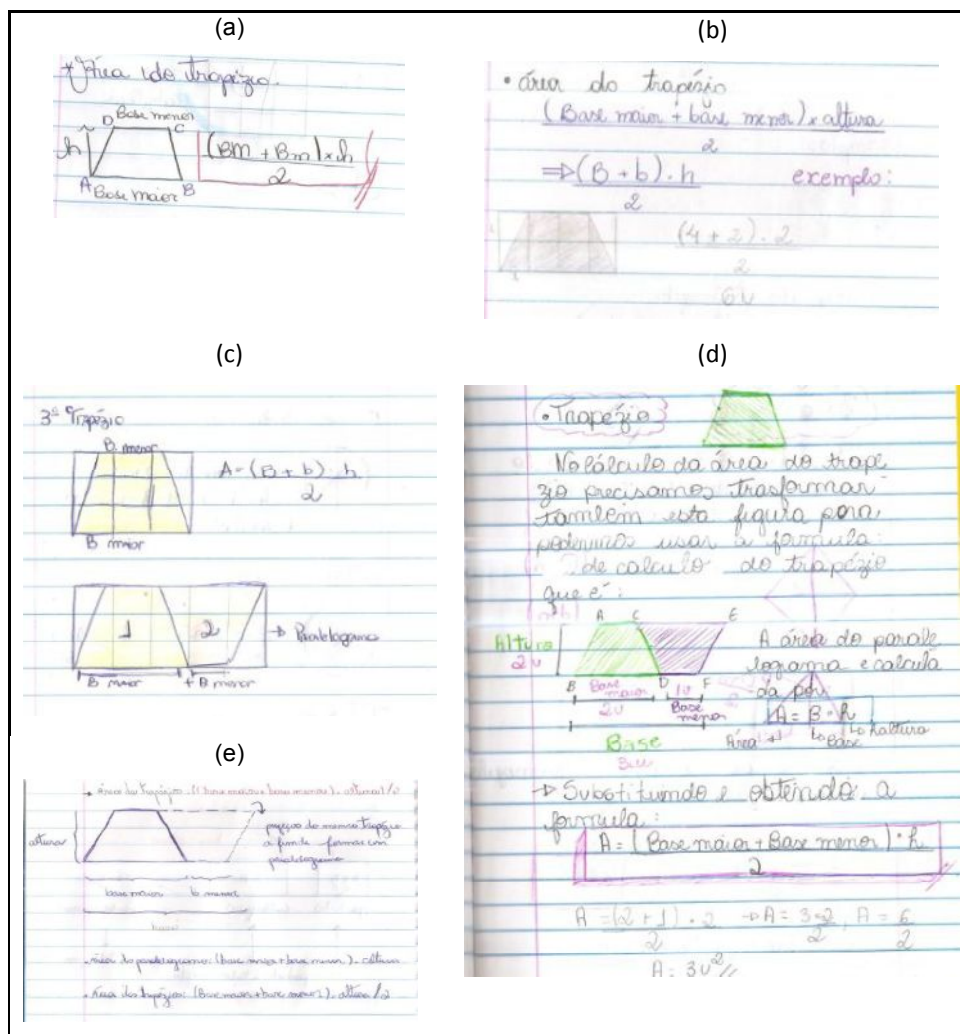 (a)
Área do trapézio.
D Base menor C
h
A Base maior B
(Bm + Bm) x h
2
(b)
• área do trapézio
(Base maior + base menor) x altura
2
⇒ (B + b) . h
2
exemplo:
(4 + 2) . 2
2
6u
(c)
3º Trapézio
B. menor
B maior
A = (B + b) . h
2
1 2
→ Paralelogramo
B maior + B menor
(d)
• Trapézio
No cálculo da área do trapé
zio precisamos trasformar
também esta figura para
podermos usar a formula
de calculo do trapézio
que é:
A C E
Altura
2u
B D F
Base maior
2u
1u
Base menor
Base
3u
A área do parale
lograma e calcula
da por
A = B . h
Área Base haltura
→ Substituindo e obtendo a
formula:
A = (Base maior + Base menor) . h
2
A = (2 + 1) . 2 → A = 3 . 2, A = 6
2 2 2
A = 3u²//
(e)
• Área do trapézio: (base maior + base menor) . altura/2
altura
mesmo trapézio
formar um
paralelogramo
base maior b menor
• área do paralelogramo: (base maior + base menor) . altura
• Área dos trapézios: (Base maior + base menor) . altura/2